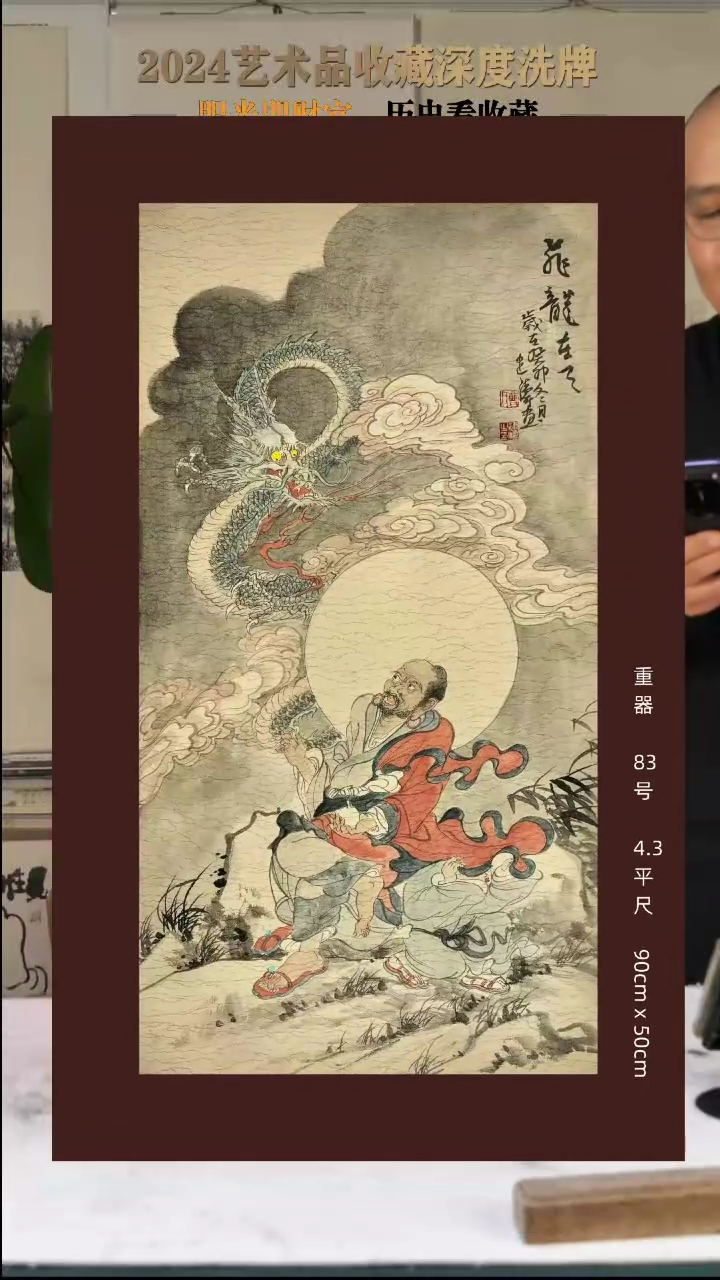 2024艺术品收藏深度洗牌
眼光即财富 历史看收藏
飛龍在天
歲在癸卯冬月
畫
重器 83号 4.3平尺 90cm x 50cm